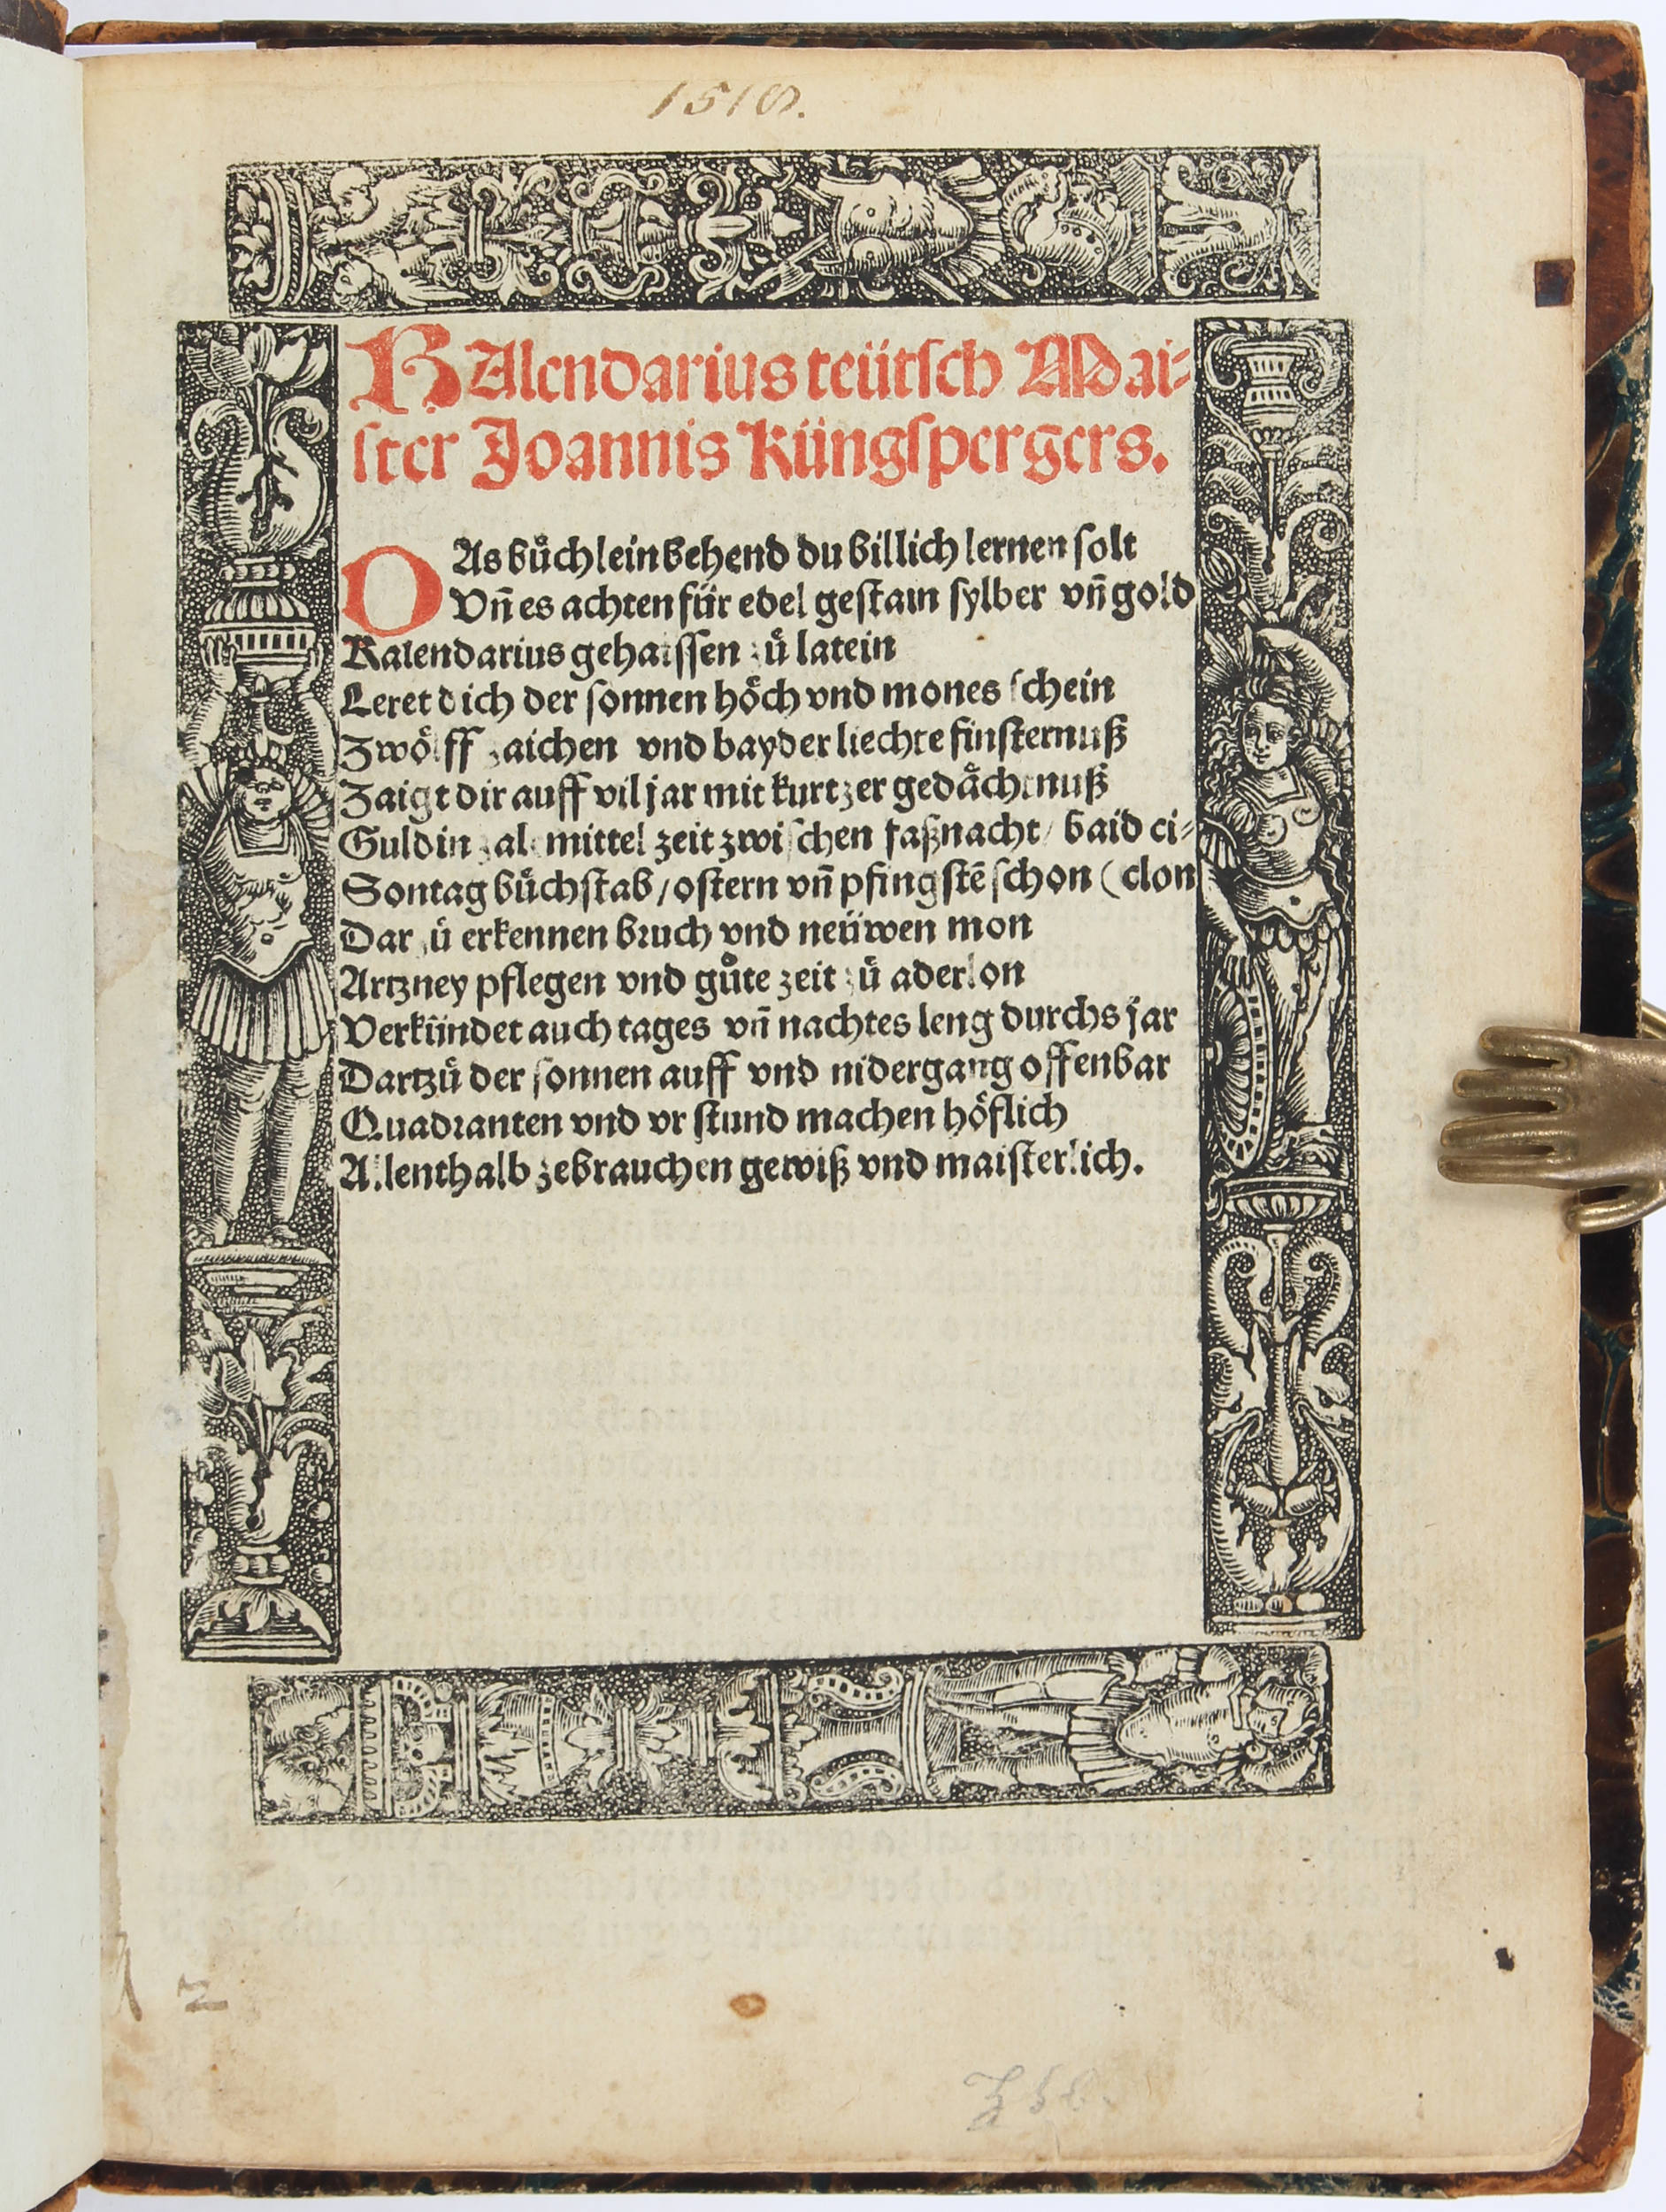 1518.
KAlendarius teütſch Mai⸗
ſter Joannis Küngſpergers.
DAs bůchlein behend du billich lernen ſolt
Vñ es achten für edel geſtain ſylber vñ gold
Kalendarius gehaiſſen zů latein
Leret dich der ſonnen hoͤch vnd mones ſchein
Zwoͤlff zaichen vnd bayder liechte finſternuß
Zaigt dir auff vil jar mit kurtzer gedaͤchtnuß
Guldin zal mittel zeit zwiſchen faßnacht / baid ci⸗
Sontag bůchſtab / oſtern vñ pfingſtē ſchon (clon
Dar zů erkennen bꝛuch vnd neüwen mon
Artzney pflegen vnd gůte zeit zů aderlon
Verkündet auch tages vñ nachtes leng durchs jar
Dartzů der ſonnen auff vnd nidergang offenbar
Quadꝛanten vnd vr ſtund machen hoͤflich
Allenthalb zebrauchen gewiß vnd maiſterlich.
2